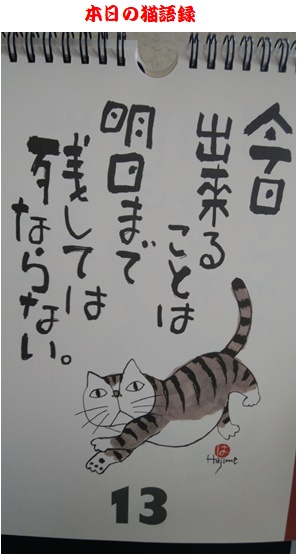 本日の猫語録
今日
出来る
ことは
明日まで
残しては
ならない。
は
Hajime
13